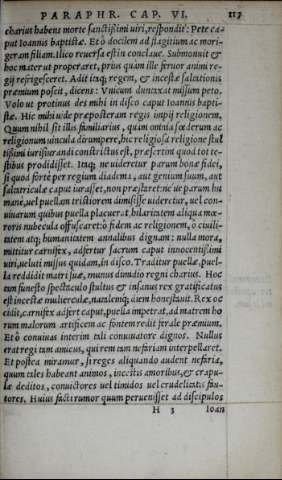 PARAPHR. CAP. VI. 113
charius habens morte sanctissimi uiri, respondit: Pete ca=
put Ioannis baptistæ. Et ò docilem ad flagitium ac mori=
geram filiam. Ilico reuersa est in conclaue. Submonuit &
hoc mater ut properaret, prius quàm ille feruor animi re=
gij refrigesceret. Adit itaq; regem, & incestæ saltationis
præmium poscit, dicens: Vnicum duntaxat nullum peto.
Volo ut protinus des mihi in disco caput Ioannis bapti=
stæ. Hic mihi uide præposteram regis impij religionem,
Quum nihil sit illis familiarius, quàm omnia fœderum ac
religionum uincula dirumpere, hic religiosa religione stul
tissimi iurisiurandi constrictus est, præsertim quod tot te=
stibus prodidisset. Itaq; ne uideretur parum bonæ fidei,
si quod fortè per regium diadema, aut genium suum, aut
saltatriculæ caput iurasset, non præstaret: ne ue parum hu
manè, uel puellam tristiorem dimisisse uideretur, uel con=
uiuarum quibus puella placuerat, hilaritatem aliqua mœ=
roris nubecula offuscaret: ò fidem ac religionem, ò ciuili=
tatem atq; humanitatem annalibus dignam: nulla mora,
mittitur carnifex, adfertur sacrum caput innocentissimi
uiri, uelut missus quidam, in disco. Traditur puellæ, puel=
la reddidit matri suæ, munus dimidio regni charius. Hoc
tam funesto spectaculo stultus & insanus rex gratificatus
est incestæ mulierculæ, natalemq; diem honestauit. Rex oc
cidit, carnifex adfert caput, puella impetrat, ad matrem ho
rum malorum artificem ac fontem redit ferale præmium.
Et ò conuiuas interim tali conuiuatore dignos. Nullus
erat regi tam amicus, qui rem tam nefariam interpellaret.
Et postea miramur, si reges aliquando audent nefaria,
quum tales habeant animos, incestis amoribus, & crapu=
læ deditos, conuictores uel timidos uel crudelitatis fau=
tores. Huius facti rumor quum peruenisset ad discipulos
H 3 Ioan